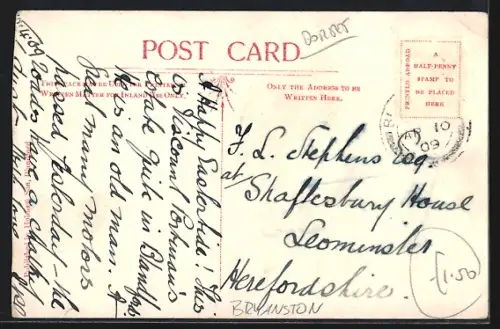 DORSET
POST CARD
THIS SPACE MAY BE USED FOR
WRITTEN MATTER FOR INLAND USE ONLY.
ONLY THE ADDRESS TO BE
WRITTEN HERE.
PRINTED ABROAD
A
HALF-PENNY
STAMP TO
BE PLACED
HERE
AP 10
09
A Happy Eastertide! This
is Viscount Portman's
estate quite in Blandford
He is an old man. A
great many motors
passed yesterday - the
roads have a chalky
F. L. Stephens Esq.
at Shaftesbury House
Leominster
Herefordshire.
BRYANSTON
£1.50